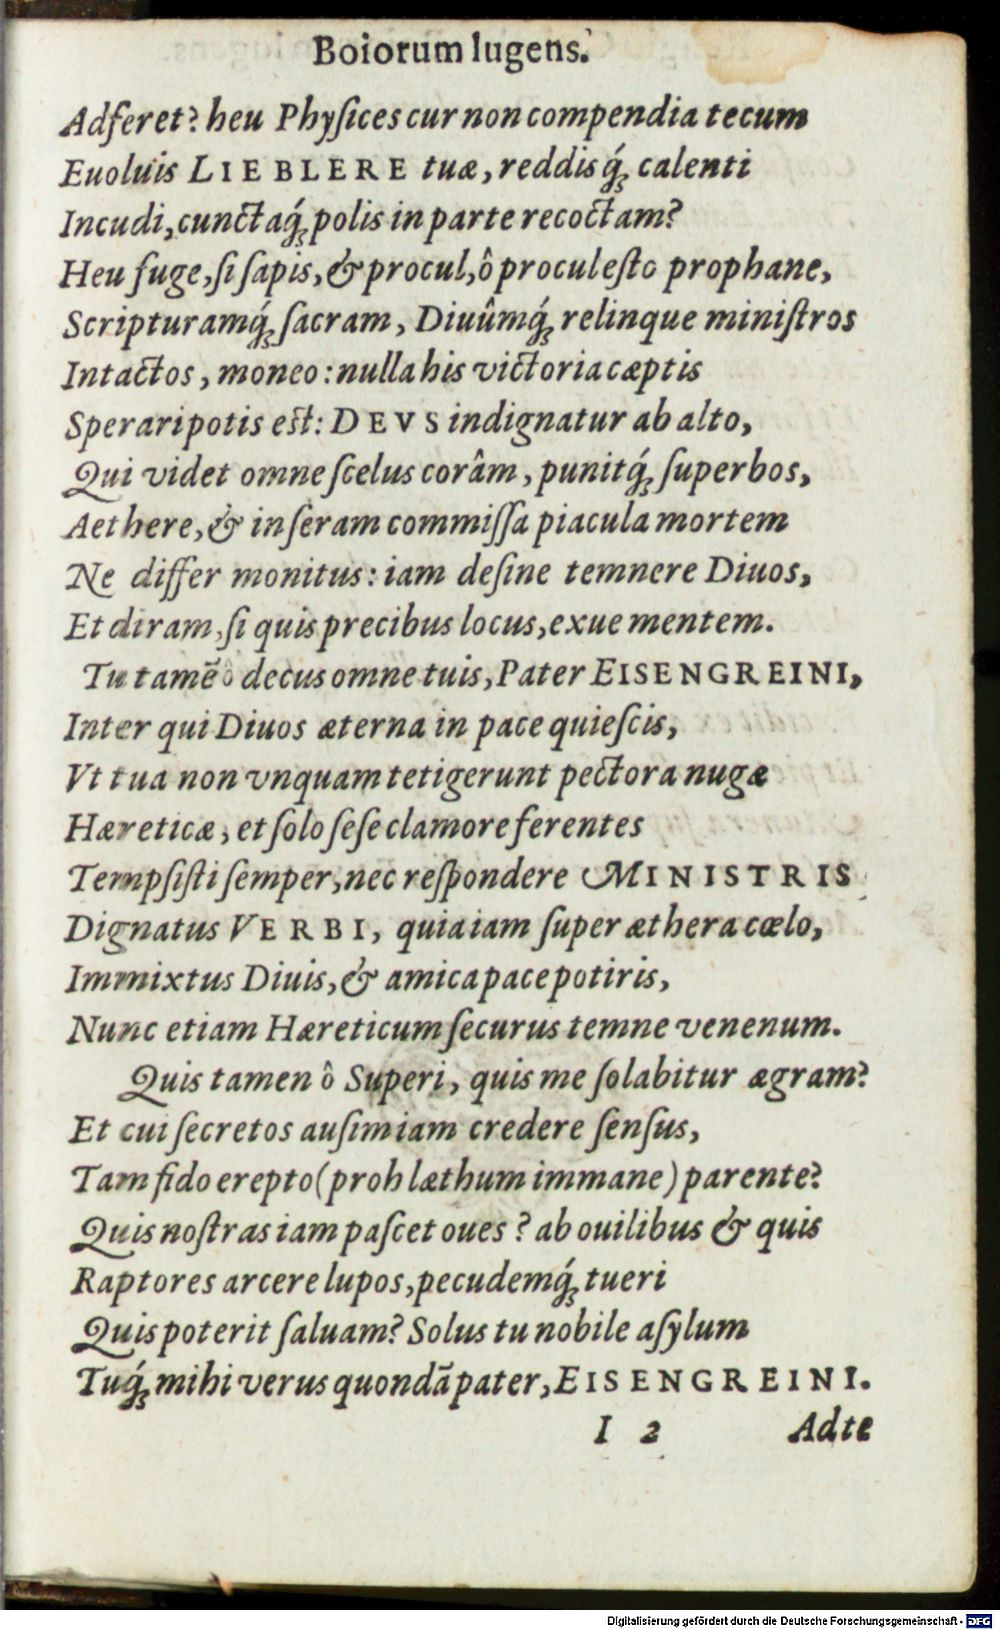 Boiorum lugens.
Adferet? heu Phyſices cur non compendia tecum
Euoluis LIEBLERE tuæ, reddisq́; calenti
Incudi, cunctaq́; polis in parte recoctam?
Heu fuge, ſi ſapis, & procul, ô procul eſto prophane,
Scripturamq́; ſacram, Diuûmq́; relinque miniſtros
Intactos, moneo: nulla his victoria cæptis
Sperari potis est: DEVS indignatur ab alto,
Qui videt omne ſcelus corâm, punitq́; ſuperbos,
Aethere, & in ſeram commiſſa piacula mortem
Ne differ monitus: iam deſine temnere Diuos,
Et diram, ſi quis precibus locus, exue mentem.
Tu tamē ô decus omne tuis, Pater EISENGREINI,
Inter qui Diuos æterna in pace quieſcis,
Vt tua non vnquam tetigerunt pectora nugæ
Hæreticæ, et ſolo ſeſe clamore ferentes
Tempſiſti ſemper, nec reſpondere MINISTRIS
Dignatus VERBI, quia iam ſuper æthera cœlo,
Immixtus Diuis, & amica pace potiris,
Nunc etiam Hæreticum ſecurus temne venenum.
Quis tamen ô Superi, quis me ſolabitur ægram?
Et cui ſecretos auſim iam credere ſenſus,
Tam fido erepto (proh læthum immane) parente?
Quis noſtras iam paſcet oues? ab ouilibus & quis
Raptores arcere lupos, pecudemq́; tueri
Quis poterit ſaluam? Solus tu nobile aſylum
Tuq́; mihi verus quondã pater, EISENGREINI.
I 2 Ad te
Digitalisierung gefördert durch die Deutsche Forschungsgemeinschaft - DFG